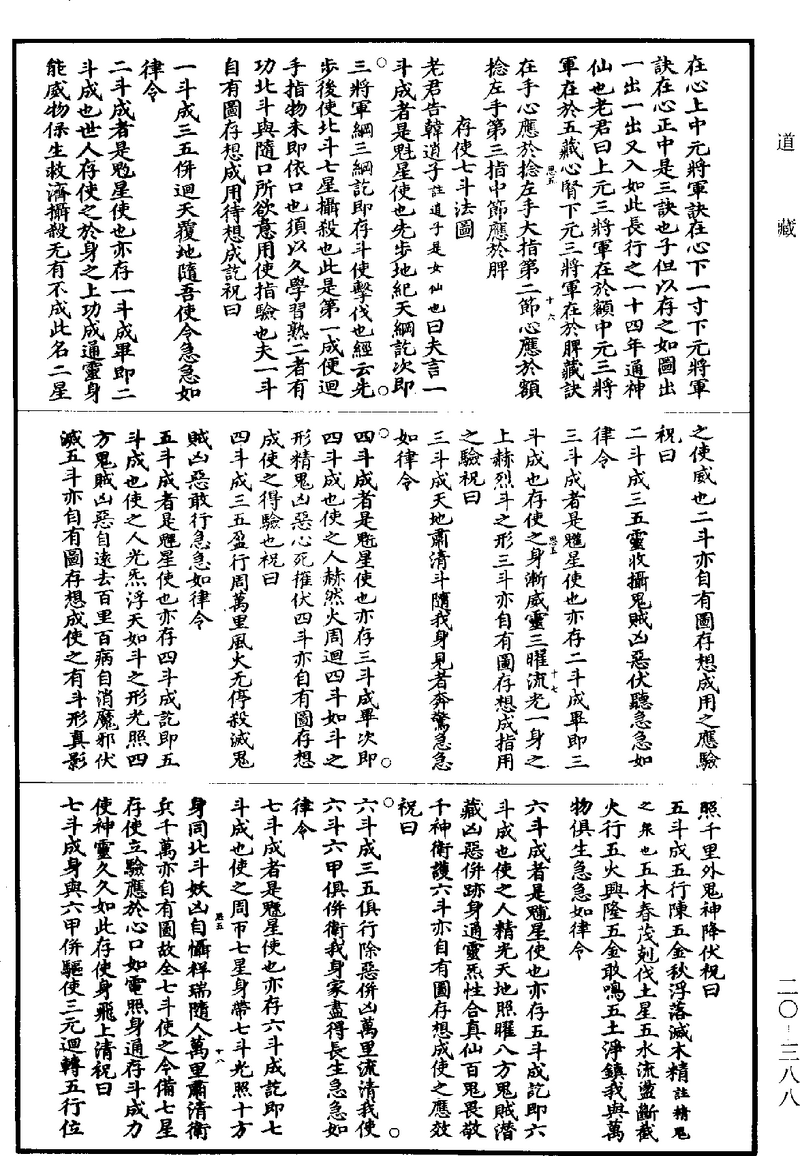 道藏
在心上中元將軍訣在心下一寸下元將軍
訣在心正中是三訣也子但以存之如圖出
一出一出又入如此長行之一十四年通神
仙也老君曰上元三將軍在於額中元三將
軍在於五藏心腎下元三將軍在於脾藏訣
在手心應於捻左手大指第二節心應於額
捻左手第三指中節應於脾
存使七斗法圖
老君告韓逍子註逍子是女仙也曰夫言一
斗成者是魁星使也先步地紀天綱訖次即
三將軍綱三綱訖即存斗使擊伐也經云先
步後使北斗七星攝殺也此是第一成便迴
手指物未即依口也須以久學習熟二者有
功北斗與隨口所欲意用使指驗也夫一斗
自有圖存想成用待想成訖祝曰
一斗成三五併迴天覆地隨吾使令急急如
律令
二斗成者是魓星使也亦存一斗成畢即二
斗成也世人存使之於身之上功成通靈身
能威物保生救濟攝殺无有不成此名二星
之使威也二斗亦自有圖存想成用之應驗
祝曰
二斗成三五靈收攝鬼賊凶惡伏聽急急如
律令
三斗成者是魕星使也亦存二斗成畢即三
斗成也存使之身漸威靈三曜流光一身之
上赫烈斗之形三斗亦自有圖存想成指用
之驗祝曰
三斗成天地肅清斗隨我身見者奔驚急急
如律令
四斗成者是魁星使也亦存三斗成畢次即
四斗成也使之人赫然火周迴四斗如斗之
形精鬼凶惡心死摧伏四斗亦自有圖存想
成使之得驗也祝曰
四斗成三五盈行周萬里風火无停殺滅鬼
賊凶惡敢行急急如律令
五斗成者是魓星使也亦存四斗成訖即五
斗成也使之人光炁浮天如斗之形光照四
方鬼賊凶惡自遠去百里百病自消魔邪伏
滅五斗亦自有圖存想成使之有斗形真影
照千里外鬼神降伏祝曰
五斗成五行陳五金秋浮落滅木精註精鬼
之眾也五木春茂剋伐土星五水流盪斷截
火行五火興隆五金敢鳴五土淨鎮我與萬
物俱生急急如律令
六斗成者是魒星使也亦存五斗成訖即六
斗成也使之人精光天地照曜八方鬼賊潛
藏凶惡併跡身通靈炁性合真仙百鬼畏敬
千神衛護六斗亦自有圖存想成使之應效
祝曰
六斗成三五俱行除惡併凶萬里流清我使
六斗六甲俱併衛我身家盡得長生急急如
律令
七斗成者是魒星使也亦存六斗成訖即七
斗成也使之周帀七星身帶七斗光照十方
身同北斗妖凶自懾祥瑞隨人萬里肅清衛
兵千萬亦自有圖故全七斗使之令備七星
存使立驗應於心口如電照身通存斗成力
使神靈久久如此存使身飛上清祝曰
七斗成身與六甲併驅使三元迴轉五行位
思五
十六
思五
十七
思五
十八
二〇-三八八